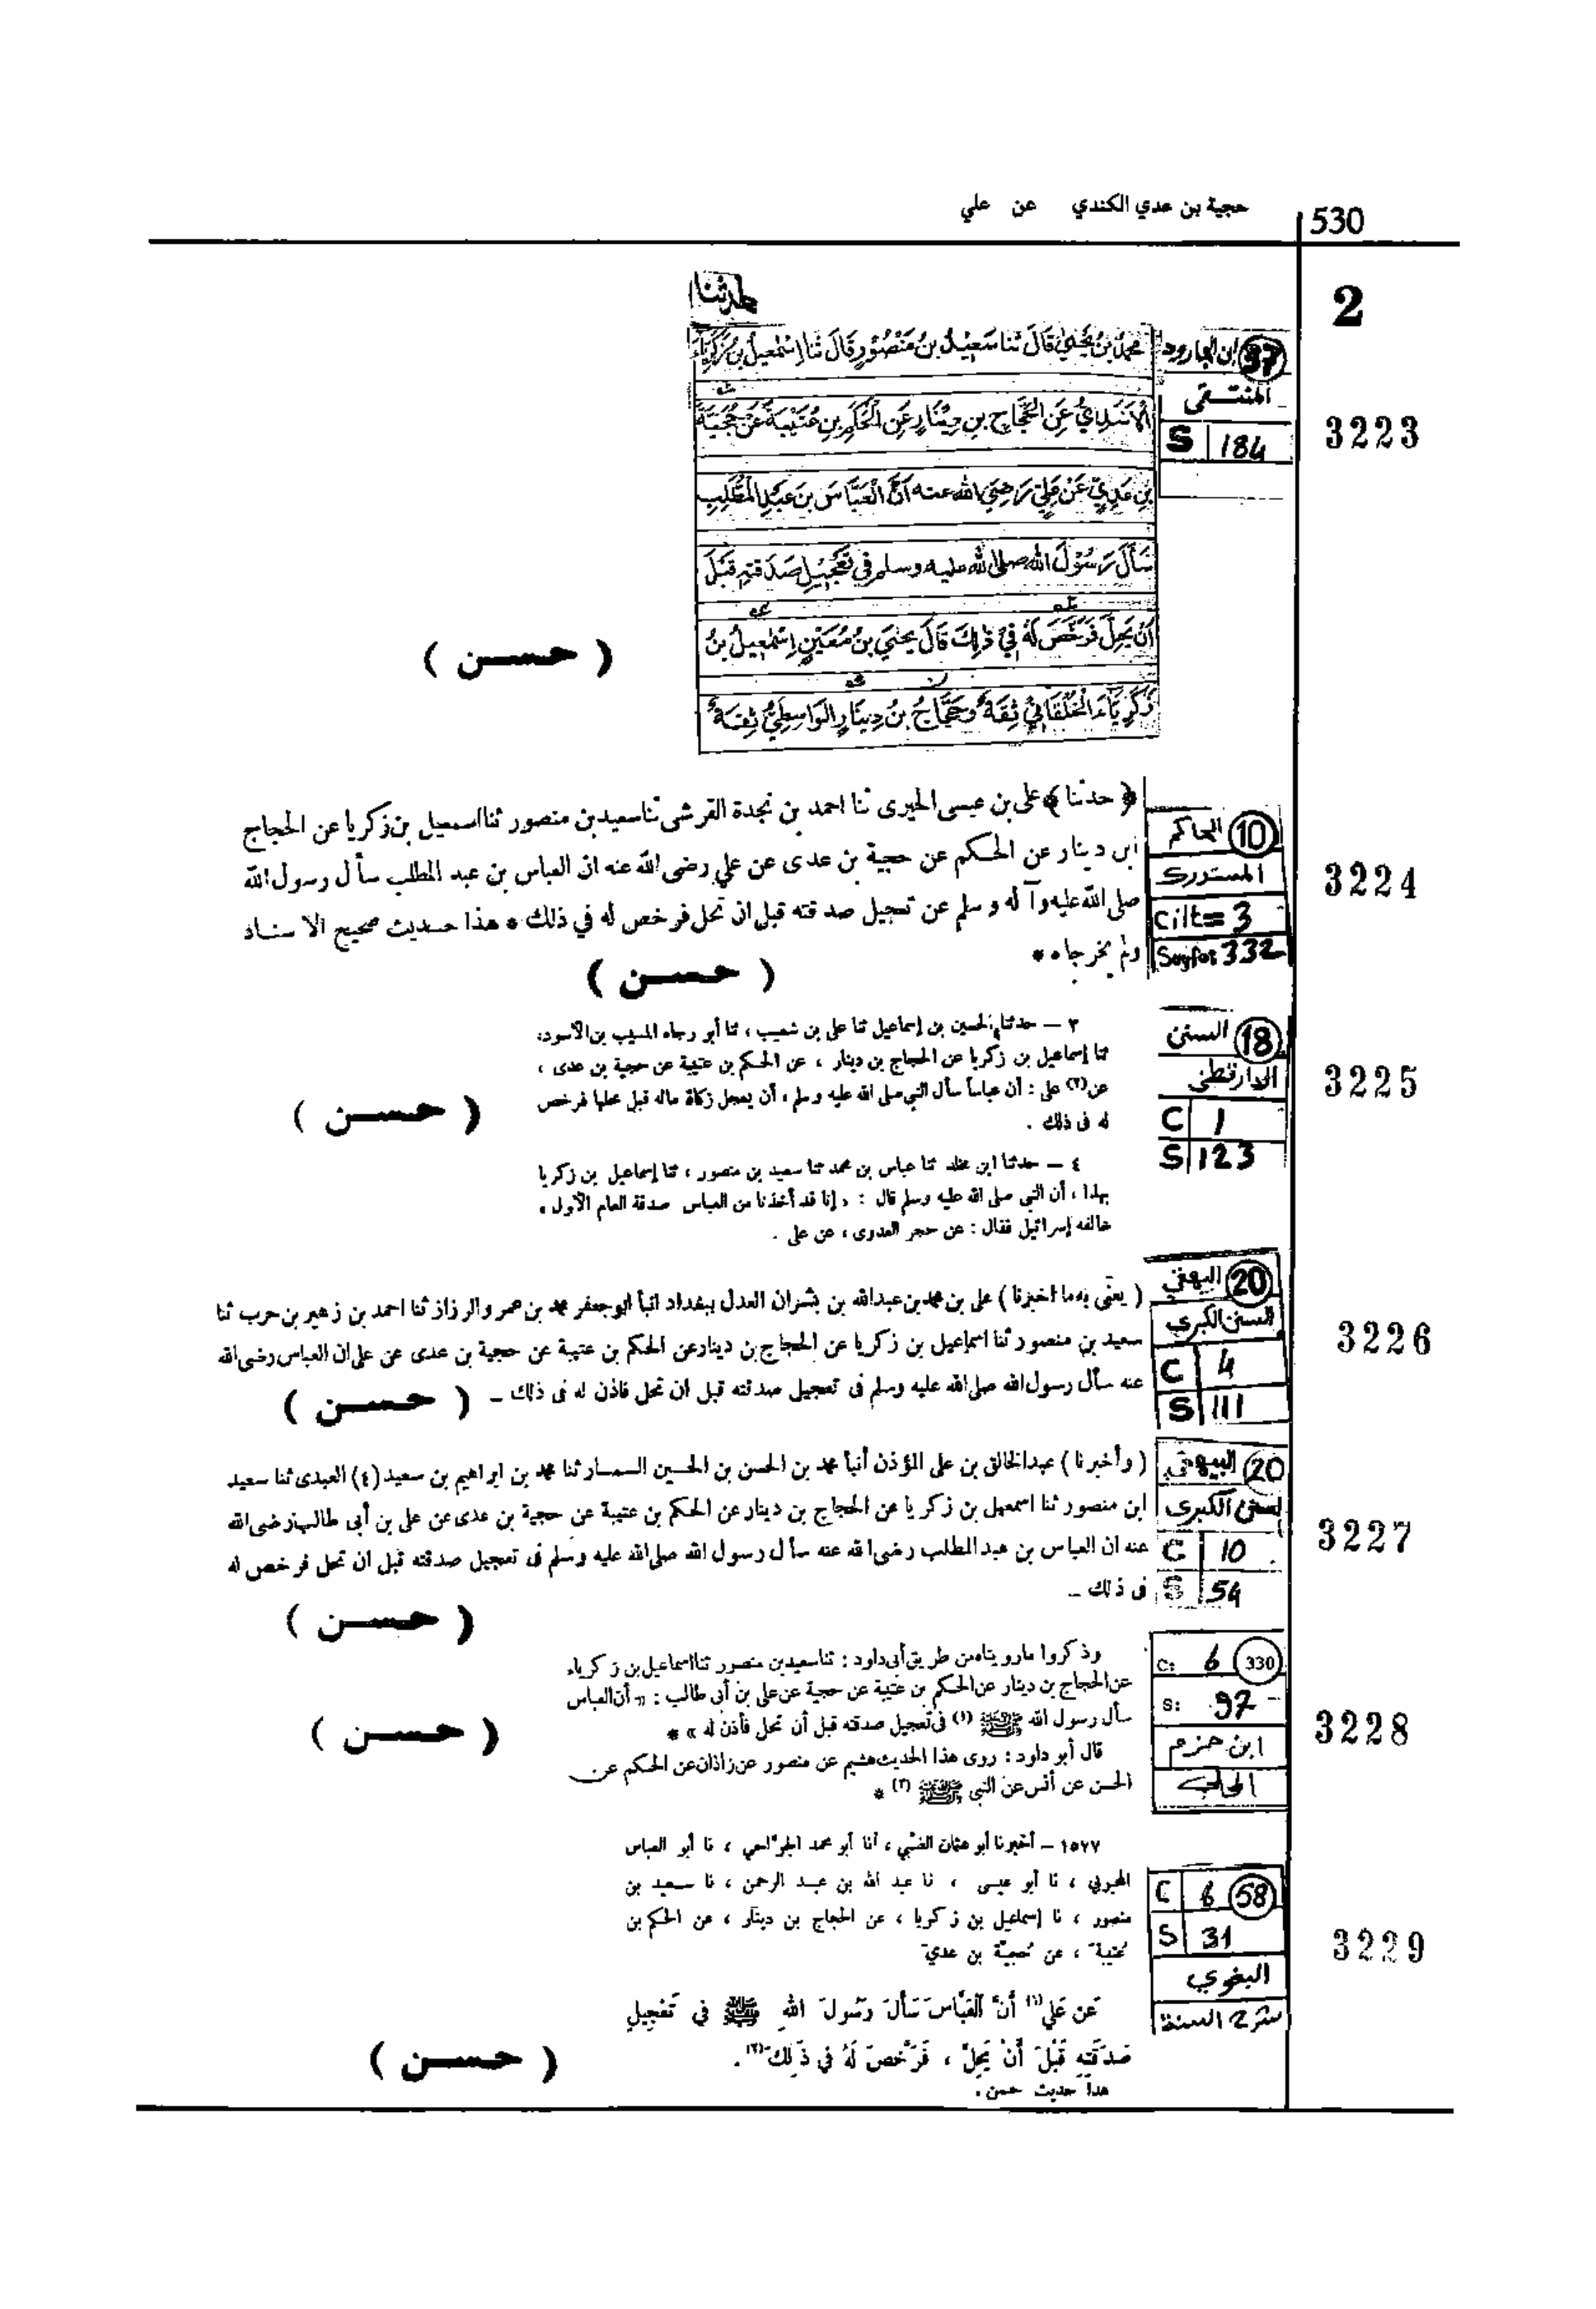 530
حجية بن عدي الكندي عن علي
2
حدثنا
محمد بن يحيى قال ثنا سعيد بن منصور قال ثنا إسمعيل بن زكرياء
عن الحجاج بن دينار عن الحكم بن عتيبة عن حجية
بن عدي عن علي رضي الله عنه أن العباس بن عبد المطلب
سأل رسول الله صلى الله عليه وسلم في تعجيل صدقته قبل
أن يحل فرخص له في ذلك قال يحيى بن معين إسمعيل بن
زكرياء الخلقاني ثقة وحجاج بن دينار الواسطي ثقة
( حسن )
37 ابن الجارود
المنتقى
S 184
3223
﴿ حدثنا ﴾ علي بن عيسى الحيرى ثنا احمد بن نجدة القرشى ثنا سعيد بن منصور ثنا اسمعيل بن زكريا عن الحجاج
ابن دينار عن الحكم عن حجية بن عدى عن علي رضى الله عنه ان العباس بن عبد المطلب سأل رسول الله
صلى الله عليه وآله وسلم عن تعجيل صدقته قبل ان تحل فرخص له في ذلك * هذا حديث صحيح الاسناد
ولم يخرجاه *
( حسن )
10 الحاكم
المستدرك
Cilt= 3
Sayfa: 332
3224
٣ – حدثنا الحسين بن إسماعيل ثنا على بن شعيب ، ثنا أبو رجاء المسيب بن الأسود،
ثنا إسماعيل بن زكريا عن الحجاج بن دينار ، عن الحكم بن عتيبة عن حجية بن عدى ،
عن(٢) على : أن عباساً سأل النبي صلى الله عليه وسلم ، أن يعجل زكاة ماله قبل محلها فرخص
له فى ذلك .
( حسن )
٤ – حدثنا ابن مخلد ثنا عباس بن محمد ثنا سعيد بن منصور ، ثنا إسماعيل بن زكريا
بهذا ، أن النبى صلى الله عليه وسلم قال : ، إنا قد أخذنا من العباس صدقة العام الأول ،
خالفه إسرائيل فقال : عن حجر العدوى ، عن على .
18 السنن
الدارقطني
C 1
S 123
3225
( يعنى به ما اخبرنا ) على بن محمد بن عبدالله بن بشران العدل ببغداد انبأ ابو جعفر محمد بن عمرو الرزاز ثنا احمد بن زهير بن حرب ثنا
سعيد بن منصور ثنا اسماعيل بن زكريا عن الحجاج بن دينار عن الحكم بن عتيبة عن حجية بن عدى عن على ان العباس رضى الله
عنه سأل رسول الله صلى الله عليه وسلم فى تعجيل صدقته قبل ان تحل فاذن له فى ذلك –
( حسن )
20 البيهقي
السنن الكبرى
C 4
S 111
3226
( وأخبرنا ) عبدالخالق بن على المؤذن أنبأ محمد بن الحسن بن الحسين السمسار ثنا محمد بن ابراهيم بن سعيد (٤) العبدى ثنا سعيد
ابن منصور ثنا اسمعيل بن زكريا عن الحجاج بن دينار عن الحكم بن عتيبة عن حجية بن عدى عن على بن أبى طالب رضى الله
عنه ان العباس بن عبد المطلب رضى الله عنه سأل رسول الله صلى الله عليه وسلم فى تعجيل صدقته قبل ان تحل فرخص له
فى ذلك –
( حسن )
20 البيهقي
السنن الكبرى
C 10
S 54
3227
وذكروا ما رويناه من طريق أبى داود : ثنا سعيد بن منصور ثنا اسماعيل بن زكرياء
عن الحجاج بن دينار عن الحكم بن عتيبة عن حجية عن على بن أبى طالب : « أن العباس
سأل رسول الله ﷺ (١) فى تعجيل صدقته قبل أن تحل فأذن له » *
قال أبو داود : روى هذا الحديث هشيم عن منصور عن زاذان عن الحكم عن
الحسن عن أنس عن النبى ﷺ (٢) *
( حسن )
C: 6 330
S: 97
ابن حزم
المحلى
3228
١٥٧٧ – أخبرنا أبو عثمان الضبي ، أنا أبو محمد الجراحي ، نا أبو العباس
المحبوبي ، نا أبو عيسى ، نا عبد الله بن عبد الرحمن ، نا سعيد بن
منصور ، نا إسماعيل بن زكريا ، عن الحجاج بن دينار ، عن الحكم بن
عتيبة ، عن حجية بن عدي
عن علي(١) أن العباس سأل رسول الله ﷺ في تعجيل
صدقته قبل أن يحل ، فرخص له في ذلك(٢) .
هذا حديث حسن .
( حسن )
C 6 58
S 31
البغوي
شرح السنة
3229